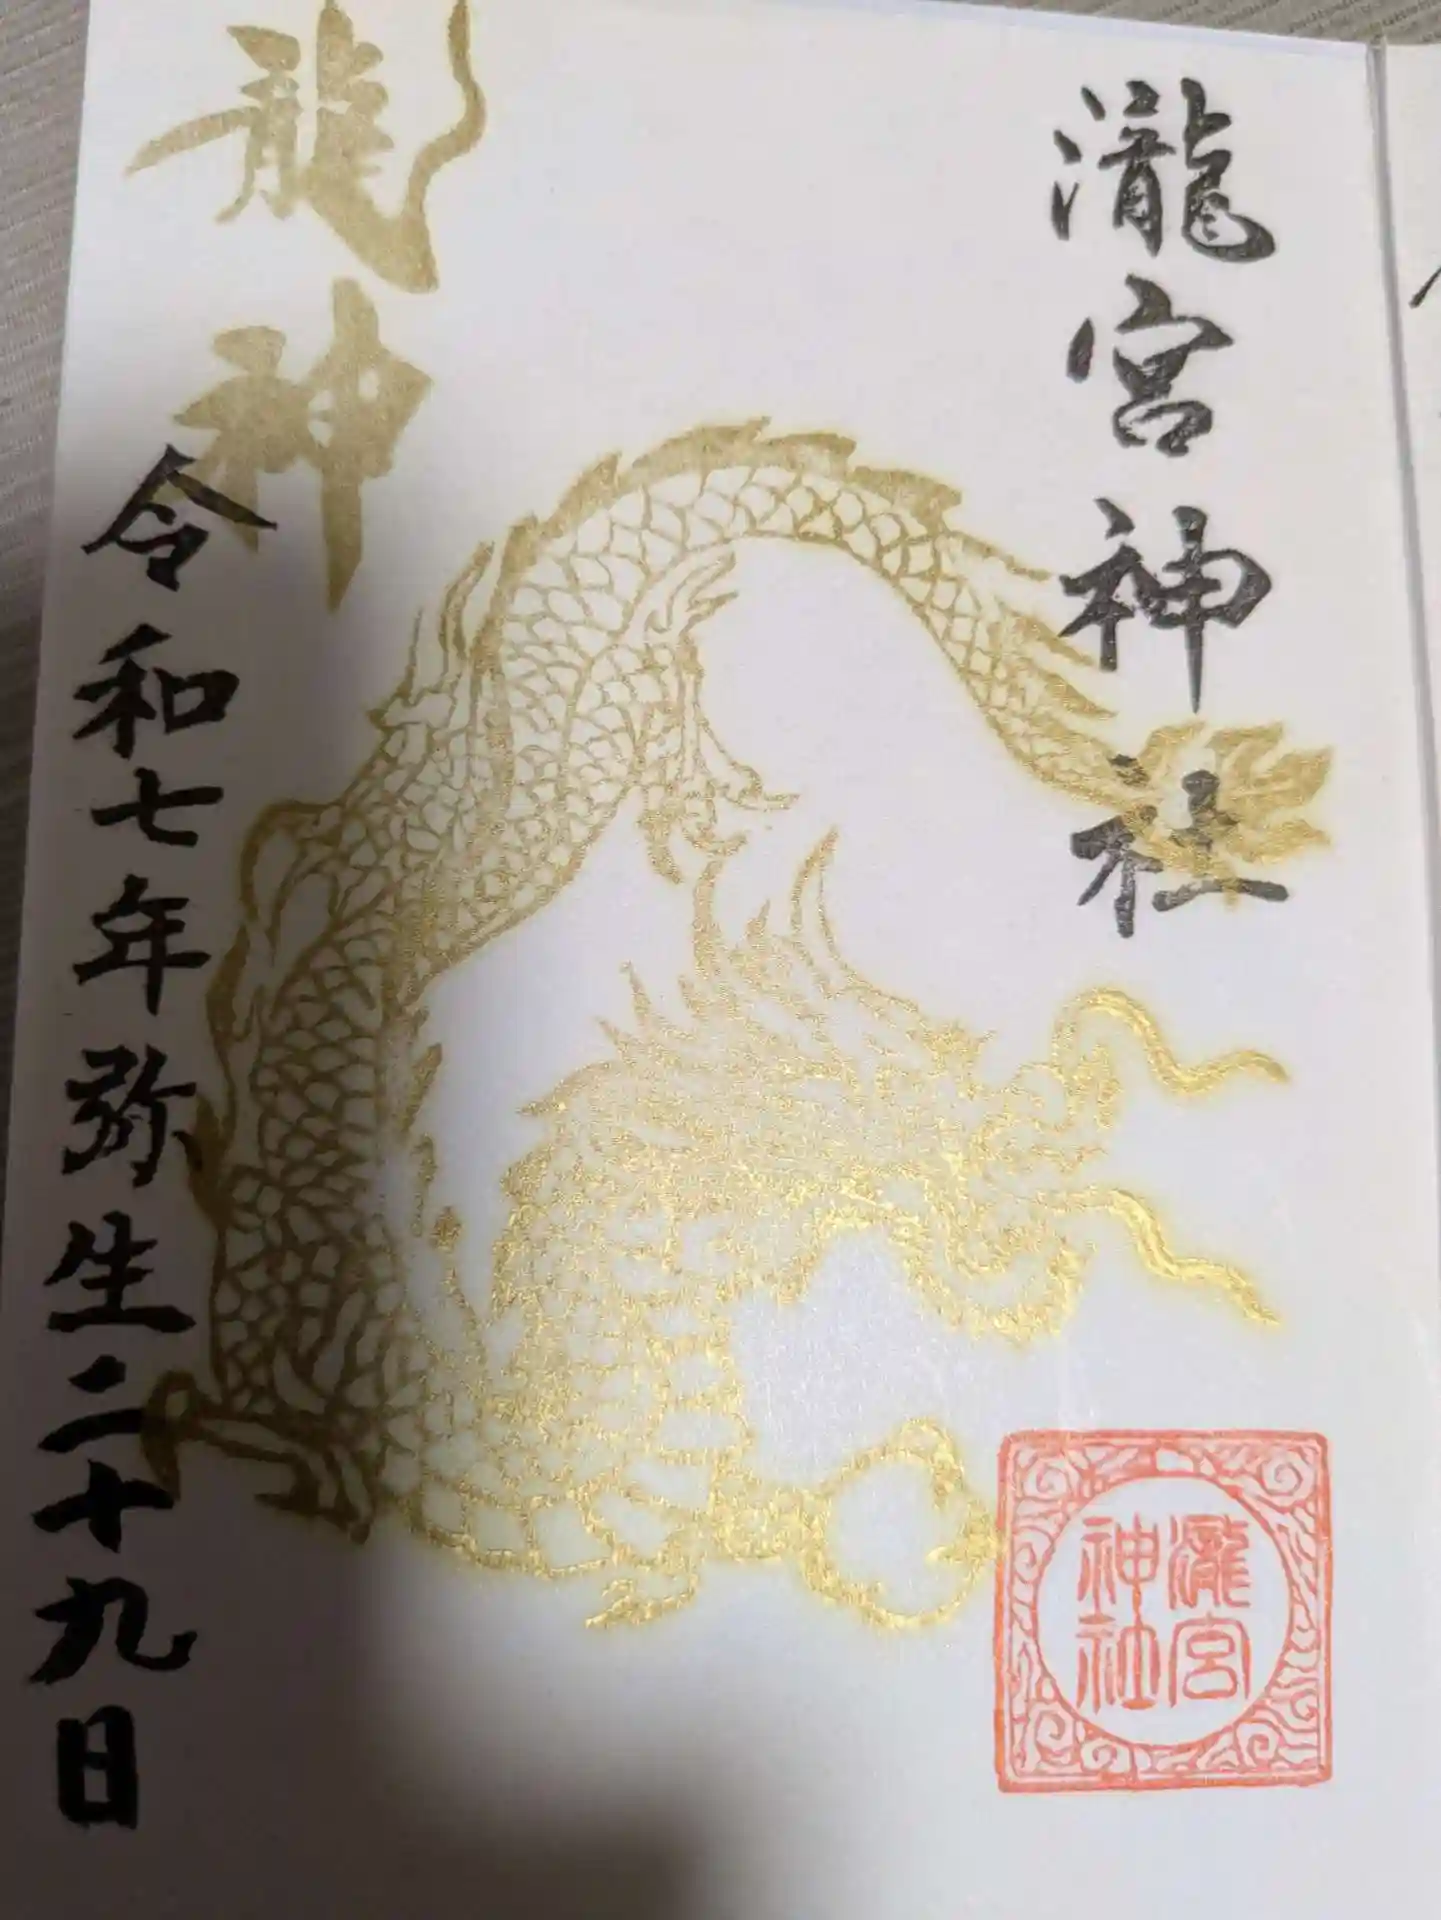 瀧宮神社
瀧宮
神社
龍神
令和七年弥生二十九日